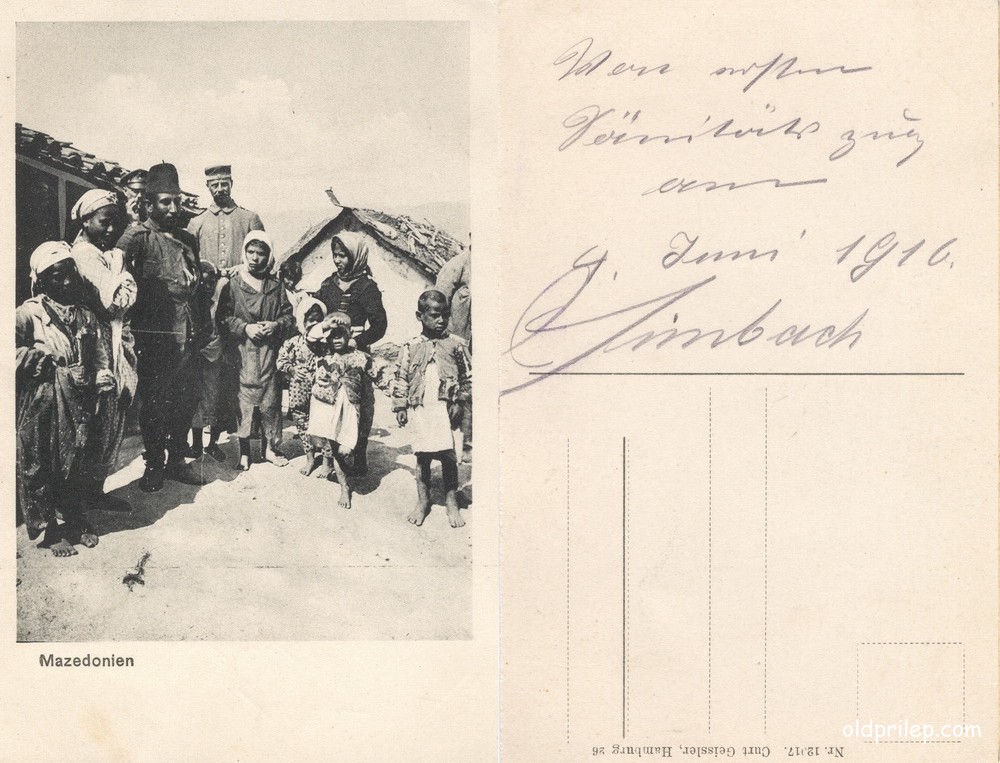 Mazedonien
Von ersten
Sänitäts zug
am
9. Juni 1916.
Simbach
Nr. 12017. Curt Geissler, Hamburg 26
oldprilep.com